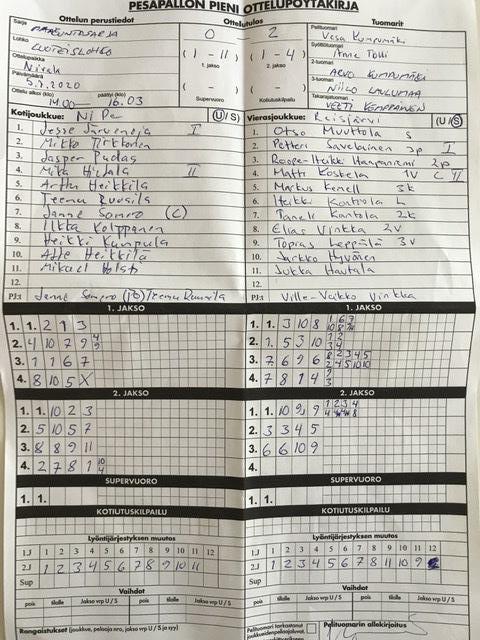 PESÄPALLON PIENI OTTELUPÖYTÄKIRJA
Ottelun perustiedot
Ottelutulos
Tuomarit
Sarja
MAAKUNTASARJA
Lohko
LUOTEISLOHKO
Ottelupaikka
Nivala
Päivämäärä
5.7.2020
Ottelu alkoi (klo) päättyi (klo)
14.00 16.03
0 2
(1 - 11) (1 - 4)
1. jakso 2. jakso
Supervuoro Kotiutuskilpailu
Pelituomari
Vesa Kumpumäki
Syöttötuomari
Anne Tolli
2-tuomari
ARVO KUMPUMÄKI
3-tuomari
NIILO LAULUMAA
Takarajatuomari
VEETI KEMPPAINEN
Kotijoukkue: NiPe (U/S)
1. Jesse Järvenoja I
2. Mikko Tirkkonen
3. Jasper Puolas
4. Mika Hidala II
5. Arttu Heikkilä
6. Teemu Ruusila
7. Janne Somero (C)
8. Ilkka Kolppanen
9. Heikki Kumpula
10. Atte Heikkilä
11. Mikael Holsti
12.
PJ:t Janne Somero (PJ) Teemu Ruusila
Vierasjoukkue: Reisjärvi (U/S)
1. Otso Muuttola S
2. Petteri Savolainen 3p I
3. Roope-Heikki Haapaniemi 2p
4. Matti Koskela 1V C II
5. Markus Kenell 3k
6. Heikki Kontiola L
7. Taneli Kantola 2k
8. Elias Vinkka 2V
9. Topias Leppälä 3V
10. Jarkko Hyvönen
11. Jukka Hautala
12.
PJ:t Ville-Veikko Vinkka
1. JAKSO
1. 1. 2 1 3
2. 4 10 7 9 4 9
3. 1 1 6 7
4. 8 10 5 X
1. JAKSO
1. 1. 3 10 8
2. 1. 5 3 10
3. 7 6 9 6
4. 7 8 1 4
2. JAKSO
1. 1. 10 2 3
2. 5 10 5 7
3. 8 8 9 11
4. 2 7 8 1 10 4
2. JAKSO
1. 1. 10 9 9
2. 3 3 4 5
3. 6 6 10 9
4.
SUPERVUORO
1. 1.
SUPERVUORO
1. 1.
KOTIUTUSKILPAILU
KOTIUTUSKILPAILU
Lyöntijärjestyksen muutos
1.J 1 2 3 4 5 6 7 8 9 10 11 12
2.J 1 2 3 4 5 6 7 8 9 10 11
Sup
Lyöntijärjestyksen muutos
1.J 1 2 3 4 5 6 7 8 9 10 11 12
2.J 1 2 3 4 5 6 7 8 11 10 9
Sup
Vaihdot
pois tilalle Jakso vrp U / S pois tilalle Jakso vrp U / S
Vaihdot
pois tilalle Jakso vrp U / S pois tilalle Jakso vrp U / S
Rangaistukset (joukkue, pelaaja nro, jakso vrp U/S ja syy)
Pelituomari tarkastanut
joukkueiden pelaajaluvat.
Pelituomarin allekirjoitus